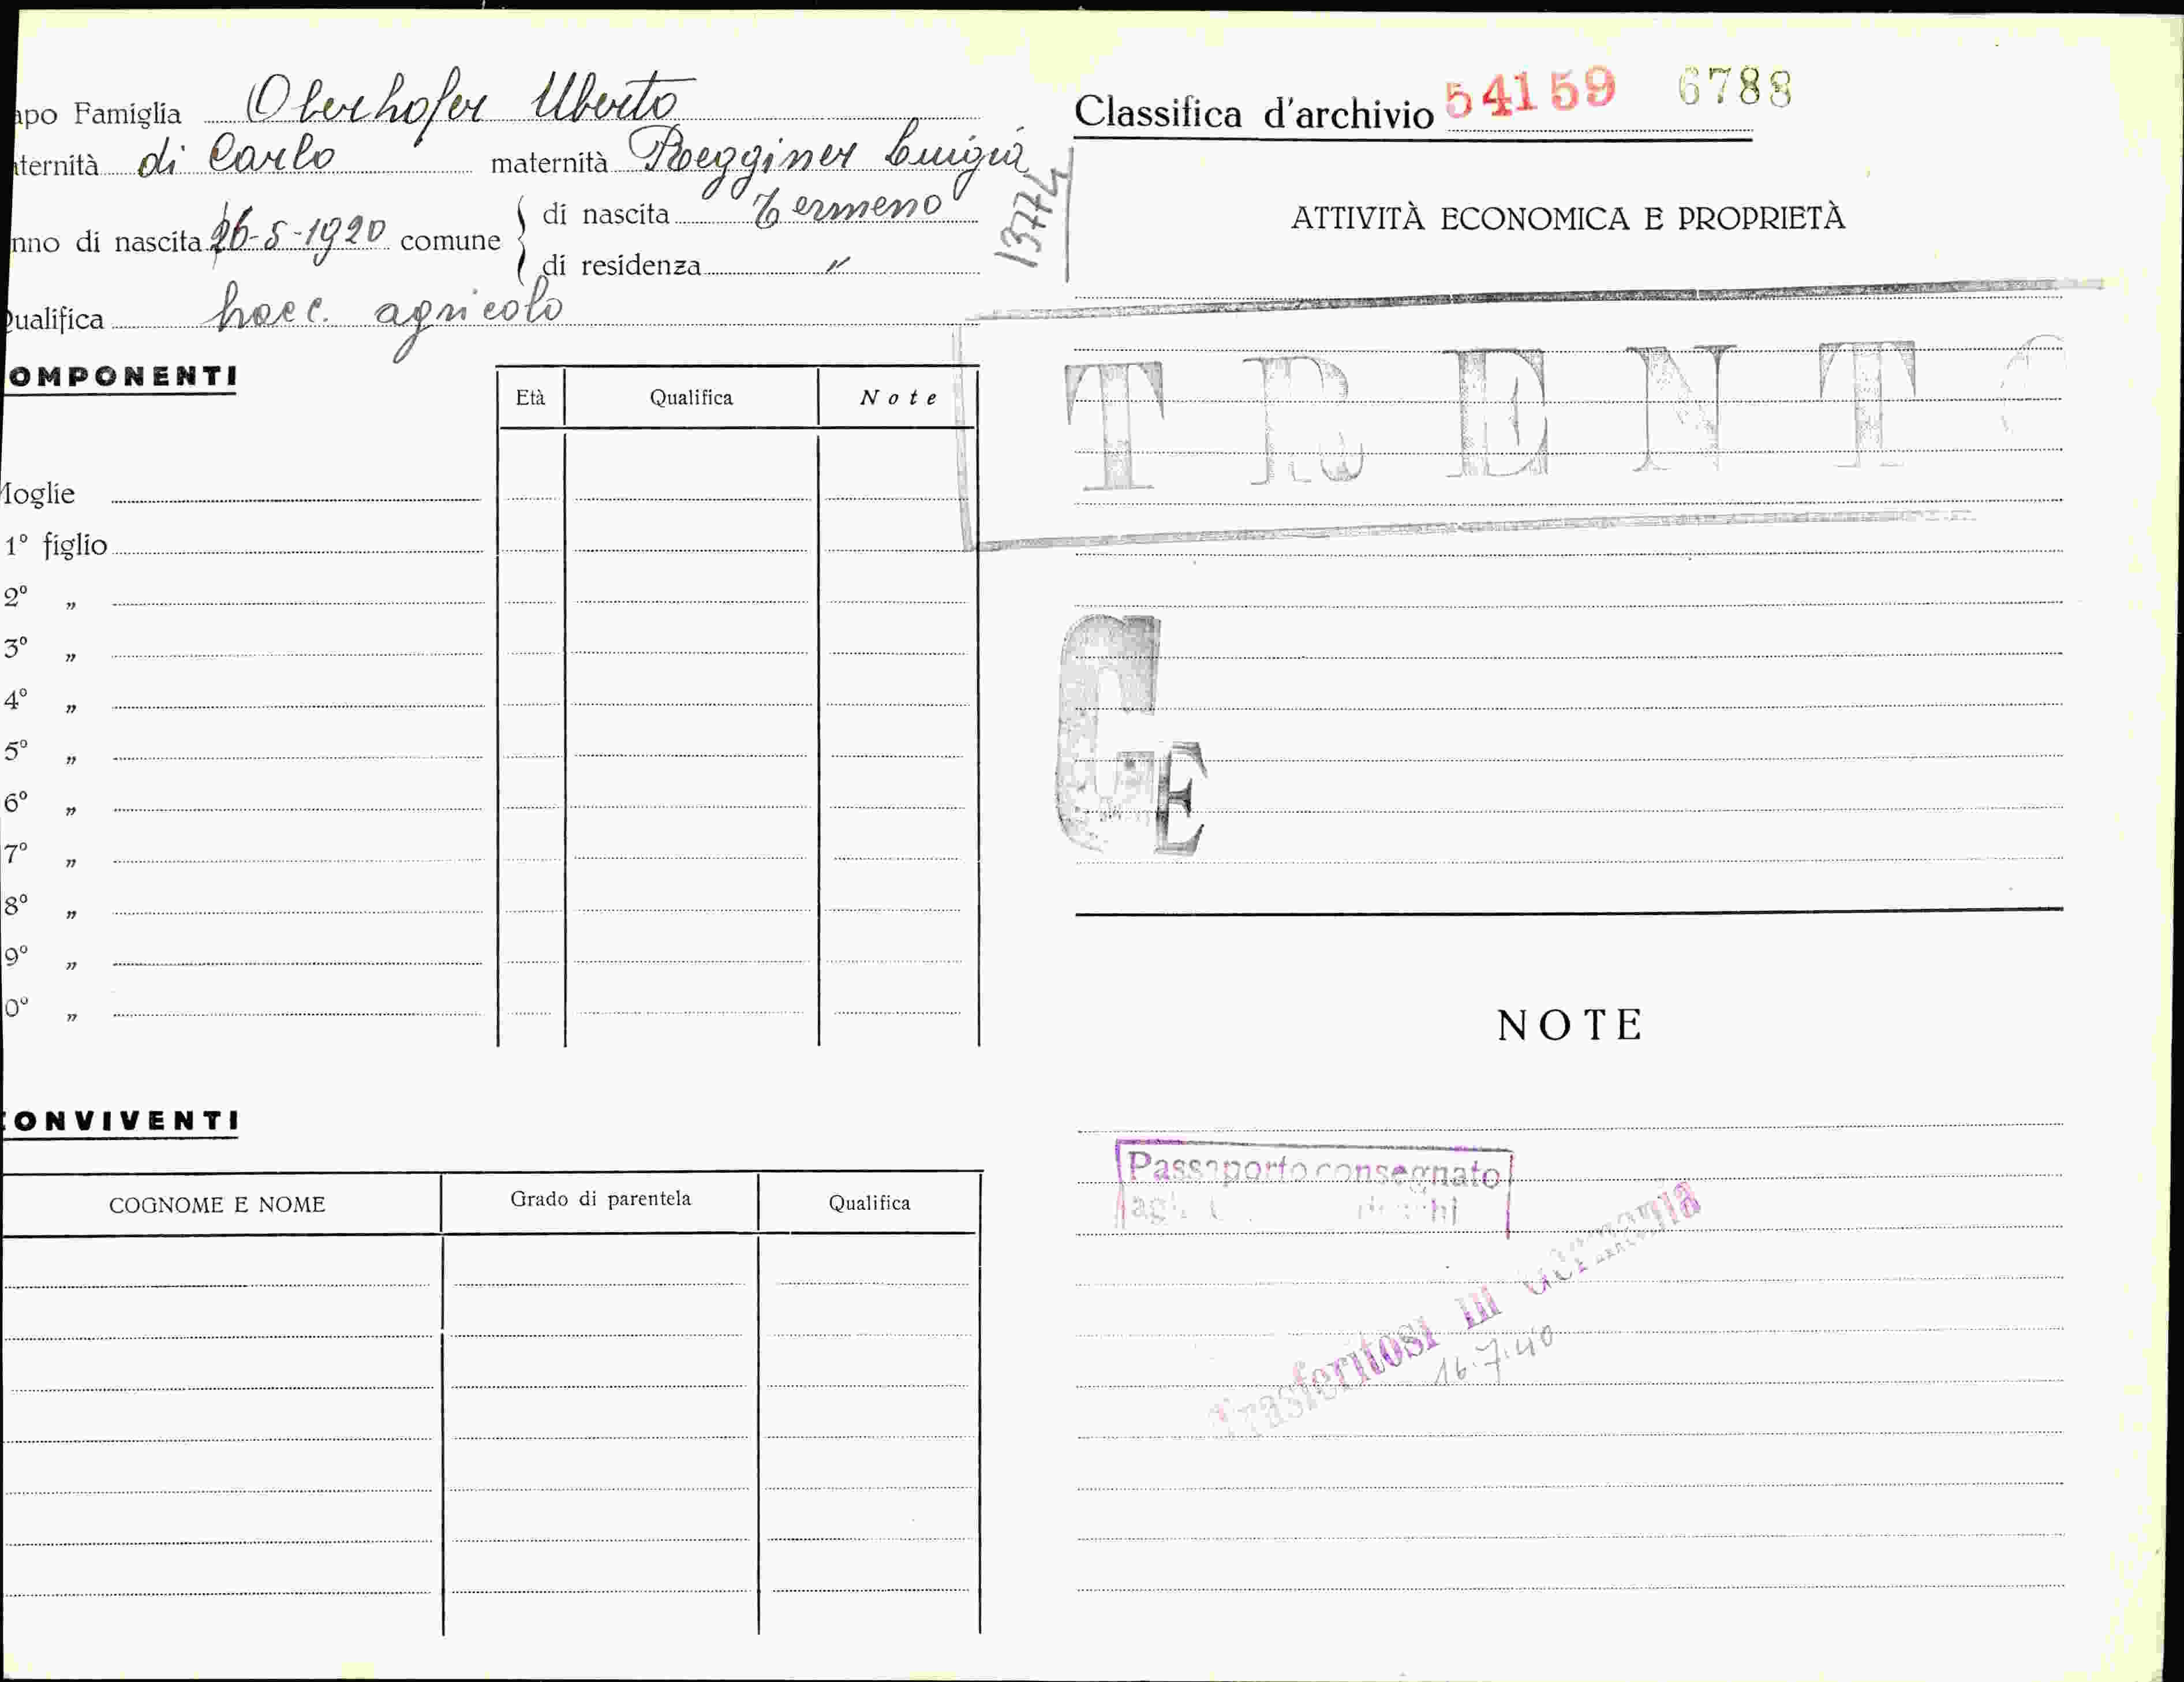 apo Famiglia Oberhofer Uberto
aternità di Carlo maternità Roegginer Luigia
nno di nascita 26-5-1920 comune di nascita Termeno
di residenza "
Qualifica bracc. agricolo
OMPONENTI
Età Qualifica Note
Moglie
1° figlio
2° „
3° „
4° „
5° „
6° „
7° „
8° „
9° „
0° „
CONVIVENTI
COGNOME E NOME Grado di parentela Qualifica
13774
Classifica d'archivio 54159 6788
ATTIVITÀ ECONOMICA E PROPRIETÀ
TRENTO
G
E
NOTE
Passaporto consegnato
Trasferitosi in Germania
16.7.40